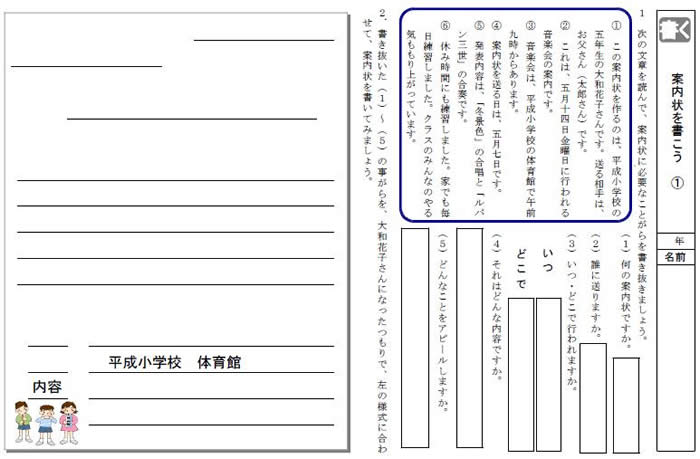 書く
案内状を書こう ①
年
名前
1 次の文章を読んで、案内状に必要なことがらを書き抜きましょう。
① この案内状を作るのは、平成小学校の
五年生の大和花子さんです。送る相手は、
お父さん（太郎さん）です。
② これは、五月十四日金曜日に行われる
音楽会の案内です。
③ 音楽会は、平成小学校の体育館で午前
九時からあります。
④ 案内状を送る日は、五月七日です。
⑤ 発表内容は、「冬景色」の合唱と「ルパ
ン三世」の合奏です。
⑥ 休み時間にも練習しました。家でも毎
日練習しました。クラスのみんなのやる
気ももり上がっています。
（1）何の案内状ですか。
（2）誰に送りますか。
（3）いつ・どこで行われますか。
いつ
どこで
（4）それはどんな内容ですか。
（5）どんなことをアピールしますか。
2．書き抜いた（1）～（5）の事がらを、大和花子さんになったつもりで、左の様式に合わ
せて、案内状を書いてみましょう。
平成小学校 体育館
内容